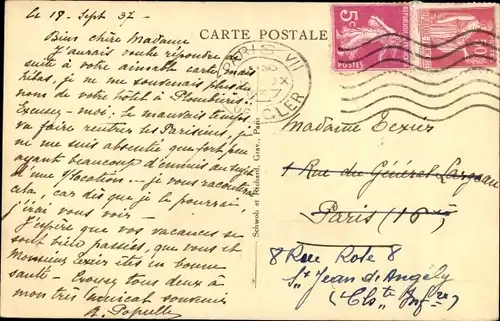 Le 18 - Sept 37 -
Bien chère Madame
J'aurais voulu répondre de
suite à votre aimable carte mais
hélas, je ne me souvenais plus du
nom de votre hôtel à Plombières.
Excusez-moi. Le mauvais temps
va faire rentrer les Parisiens, je
ne me suis absentée que fort peu
ayant beaucoup d'ennuis au sujet
d'une location - je vous raconterai
cela, car dès que je le pourrai,
j'irai vous voir -
J'espère que vos vacances se
sont bien passées, que vous et
Monsieur Texier êtes en bonne
santé - Croyez tous deux à
mon très amical souvenir
CARTE POSTALE
Schwob et Richard, Grav., Paris
PARIS VII
CLER
5c
POSTES
Madame Texier
1 Rue du Général
Paris (16
8 Rue Rose 8
St Jean d'Angély
(Chte Infre)